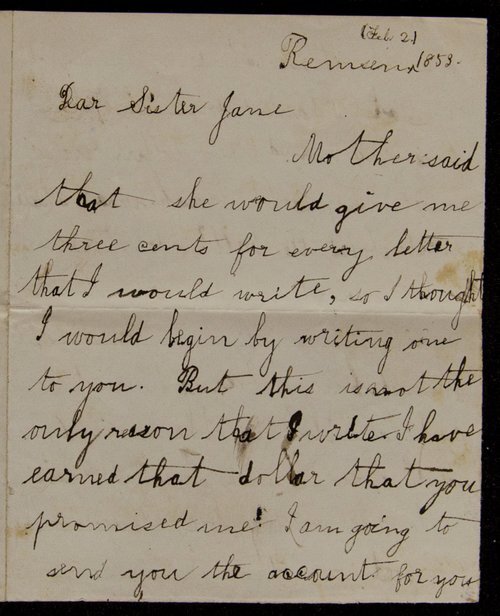 (Feb 2.)
Remsen, 1853.
Dear Sister Jane
Mother said
that she would give me
three cents for every letter
that I would write, so I thought
I would begin by writing one
to you. But this is not the
only reason that I write. I have
earned that dollar that you
promised me. I am going to
send you the account for you